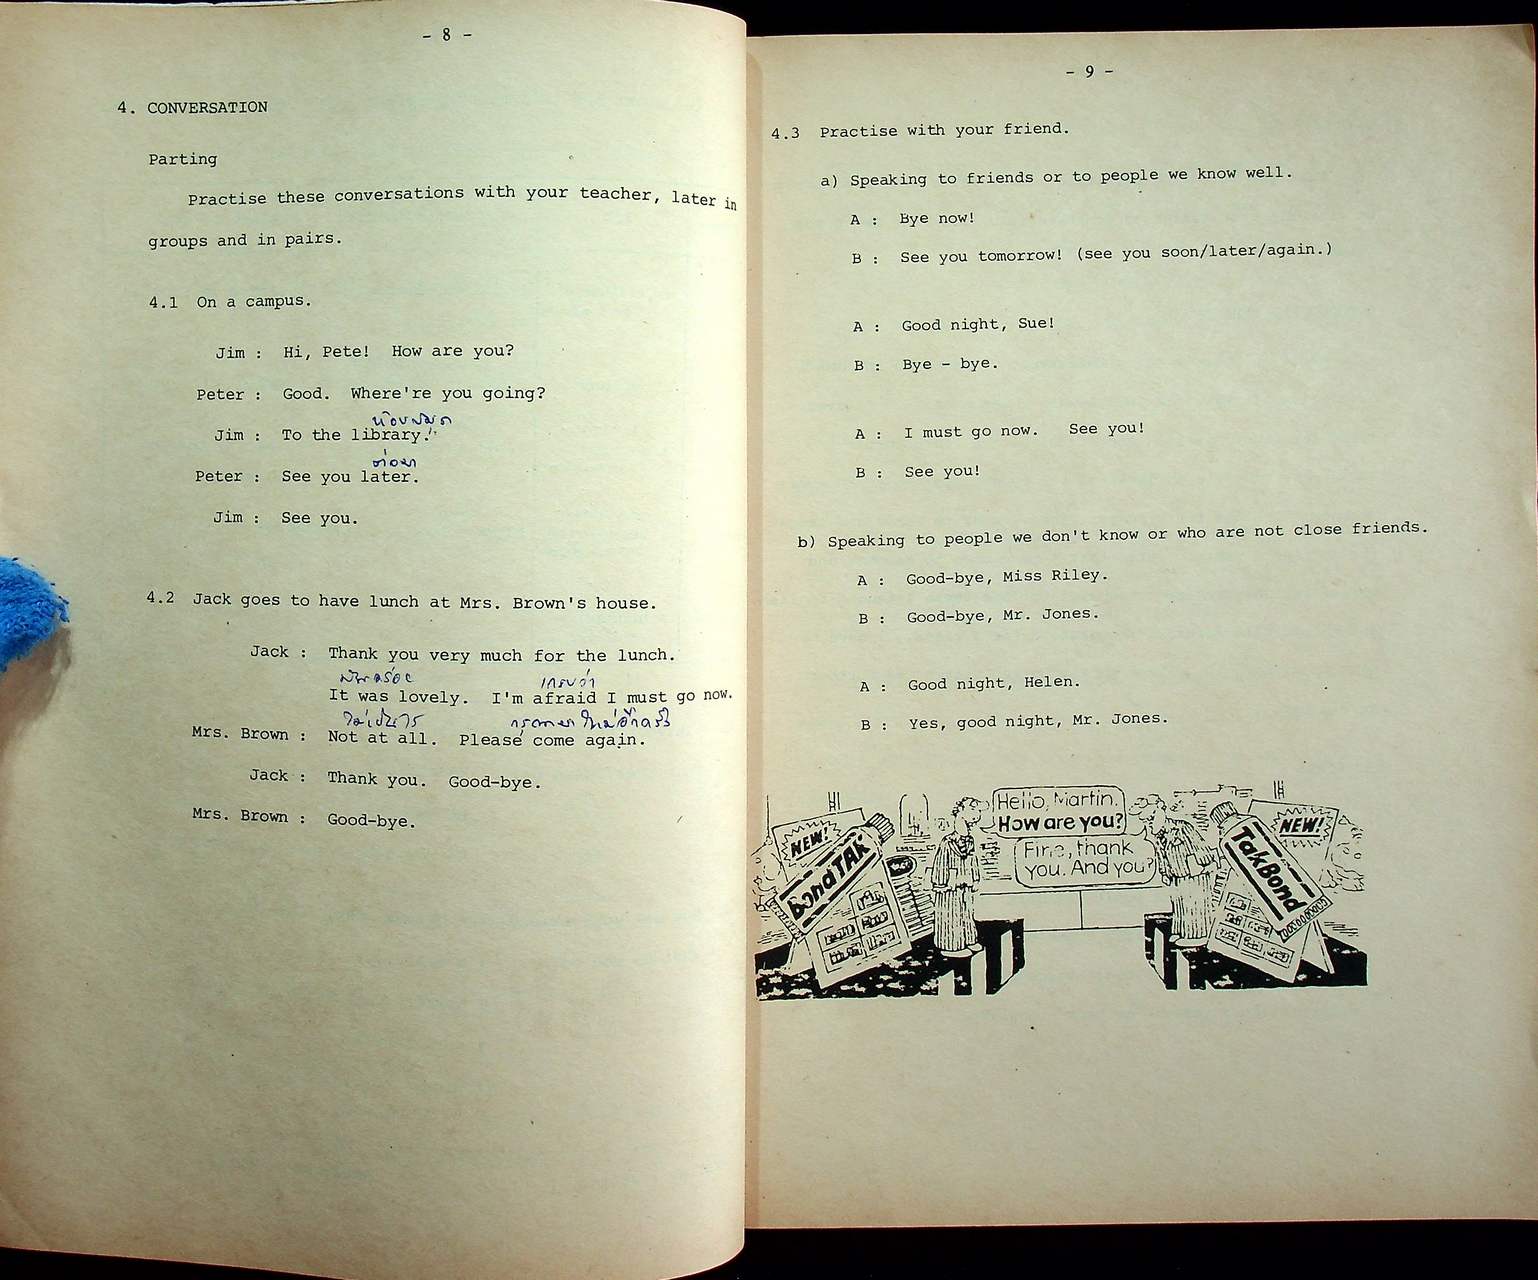 - 8 -
4. CONVERSATION
Parting
Practise these conversations with your teacher, later in
groups and in pairs.
4.1 On a campus.
Jim : Hi, Pete! How are you?
Peter : Good. Where're you going?
ห้องสมุด
Jim : To the library.
Peter : See you later.
Jim : See you.
4.2 Jack goes to have lunch at Mrs. Brown's house.
Jack : Thank you very much for the lunch.
เกรงว่า
It was lovely. I'm afraid I must go now.
ไม่เป็นไร
Mrs. Brown : Not at all. Please come again.
Jack : Thank you. Good-bye.
Mrs. Brown : Good-bye.
- 9 -
4.3 Practise with your friend.
a) Speaking to friends or to people we know well.
A : Bye now!
B : See you tomorrow! (see you soon/later/again.)
A : Good night, Sue!
B : Bye - bye.
A : I must go now. See you!
B : See you!
b) Speaking to people we don't know or who are not close friends.
A : Good-bye, Miss Riley.
B : Good-bye, Mr. Jones.
A : Good night, Helen.
B : Yes, good night, Mr. Jones.
Hello, Martin.
How are you?
Fine, thank
you. And you?
NEW!
BondTAK
NEW!
TakBond